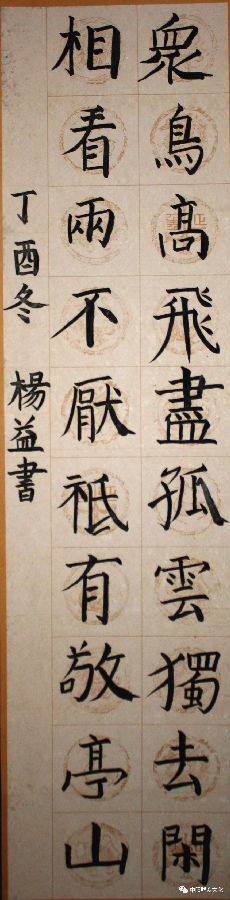 眾鳥高飛盡孤雲獨去閑
相看兩不厭祗有敬亭山
丁酉冬 楊益書